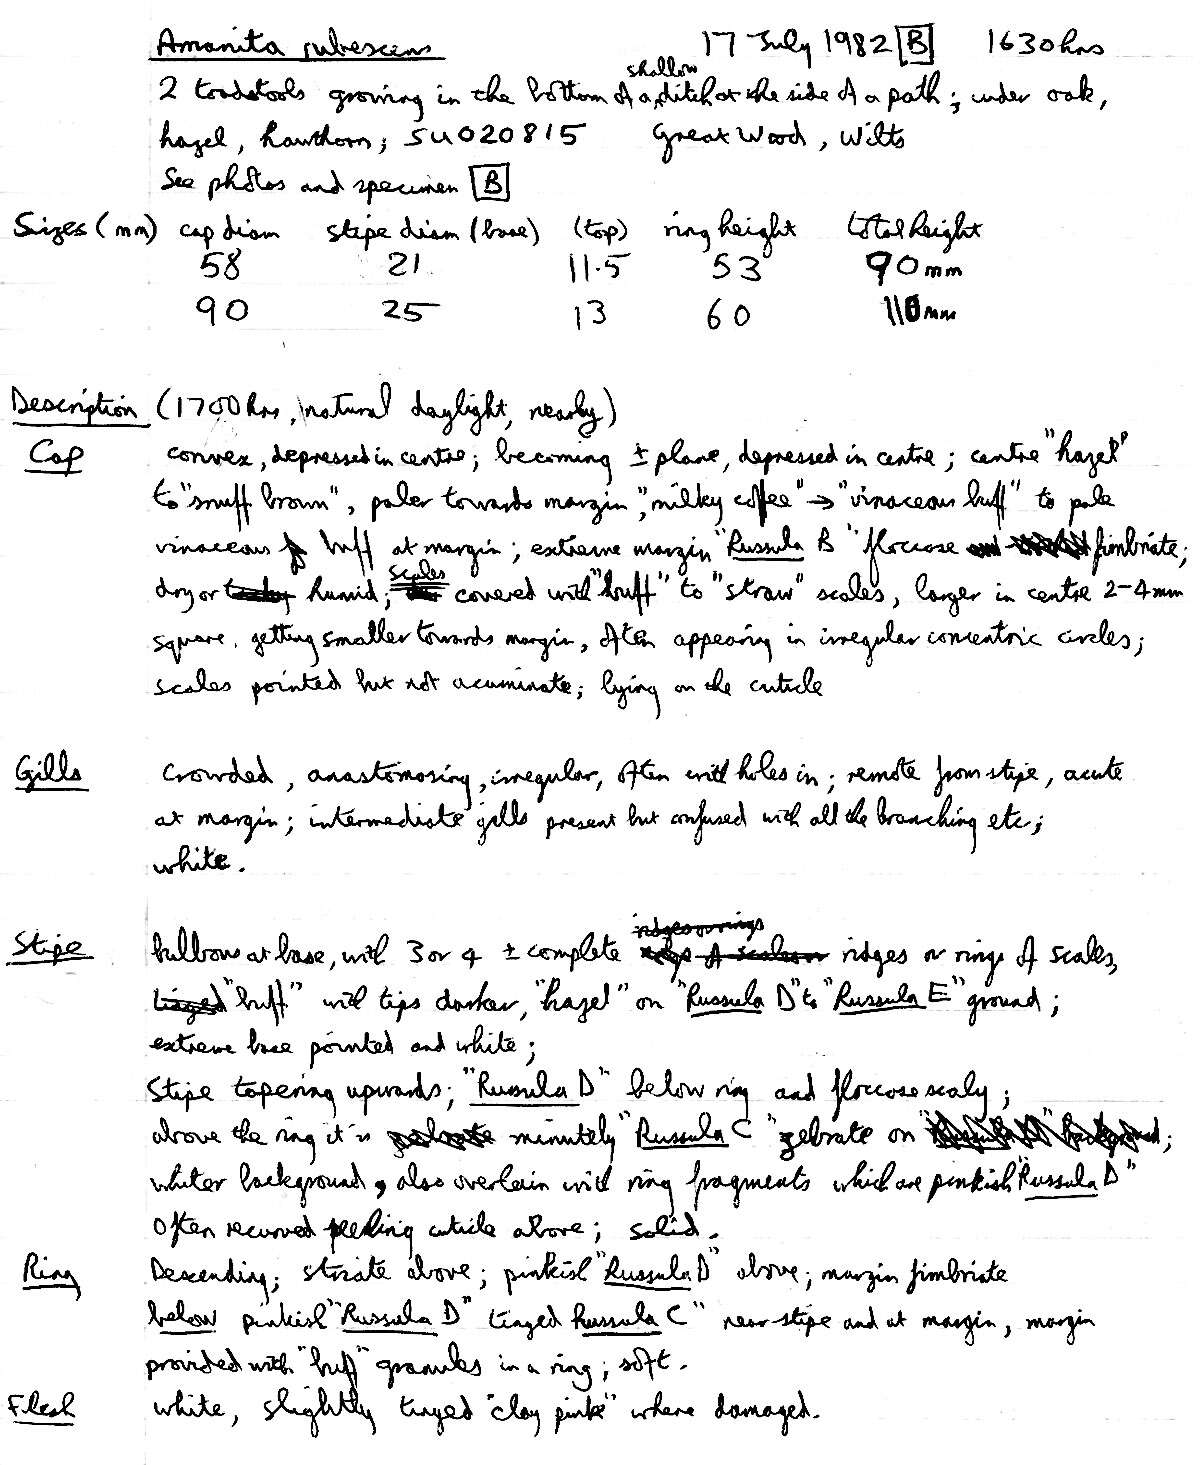 Amanita rubescens 17 July 1982 [B] 1630 hrs
2 toadstools growing in the bottom of a shallow ditch at the side of a path; under oak,
hazel, hawthorn; SU020815 Great Wood, Wilts
See photos and specimen [B]
Sizes (mm) cap diam stipe diam (base) (top) ring height total height
58 21 11.5 53 90mm
90 25 13 60 110mm
Description (1700 hrs, natural daylight, nearby)
Cap convex, depressed in centre; becoming ± plane, depressed in centre; centre "hazel"
to "snuff brown", paler towards margin, "milky coffee" → "vinaceous buff" to pale
vinaceous buff at margin; extreme margin "Russula B" floccose fimbriate;
dry or humid; scales covered with "buff" to "straw" scales, larger in centre 2-4mm
square, getting smaller towards margin, often appearing in irregular concentric circles;
scales pointed but not acuminate; lying on the cuticle
Gills Crowded, anastomosing, irregular, often with holes in; remote from stipe, acute
at margin; intermediate gills present but confused with all the branching etc;
white.
Stipe bulbous at base, with 3 or 4 ± complete ridges or rings of scales,
"buff" with tips darker, "hazel" on "Russula D" to "Russula E" ground;
extreme base pointed and white;
Stipe tapering upwards; "Russula D" below ring and floccose scaly;
above the ring it is minutely "Russula C" zebrate on
whiter background, also overlain with ring fragments which are pinkish "Russula D"
often recurved peeling cuticle above; solid.
Ring Descending; striate above; pinkish "Russula D" above; margin fimbriate
below pinkish "Russula D" tinged Russula C" near stipe and at margin, margin
provided with "buff" granules in a ring; soft.
Flesh white, slightly tinged "clay pink" where damaged.